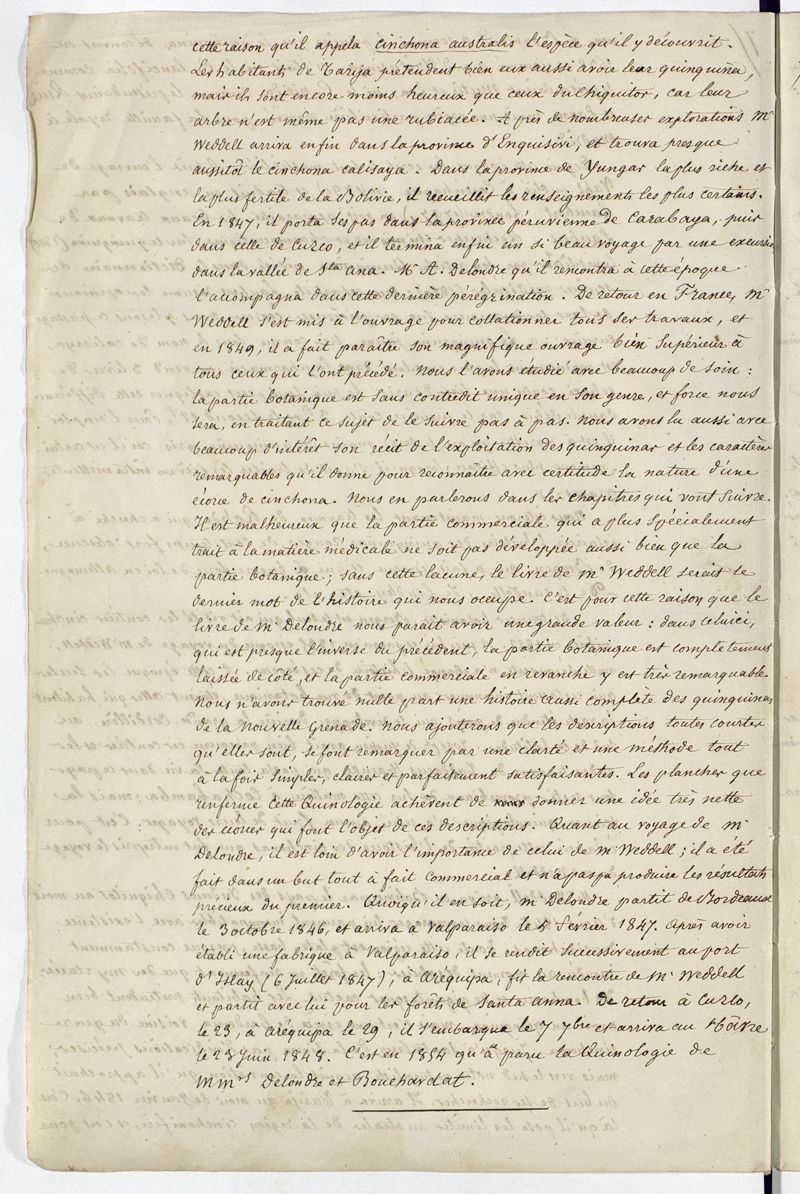 cette raison qu'il appela cinchona australis l'espèce qu'il y découvrit.
Les habitants de Tarija prétendent bien eux aussi avoir leur quinquina,
mais ils sont encore moins heureux que ceux du Chiquitos, car leur
arbre n'est même pas une rubiacée. Après de nombreuses explorations Mr
Weddell arriva enfin dans la province d'Enquisivi, et trouva presque
aussitôt le cinchona calisaya. Dans la province de Yungas la plus riche et
la plus fertile de la Bolivie, il recueillit les renseignements les plus certains.
En 1847, il porta ses pas dans la province péruvienne de Carabaya, puis
dans celle de Cuzco, et il termina enfin un si beau voyage par une excursion
dans la vallée de Sta Ana. M A. Delondre qu'il rencontra à cette époque
l'accompagna dans cette dernière pérégrination. De retour en France, Mr
Weddell s'est mis à l'ouvrage pour collationner tous ses travaux, et
en 1849, il a fait paraître son magnifique ouvrage bien supérieur à
tous ceux qui l'ont précédé. Nous l'avons étudié avec beaucoup de soin :
la partie botanique est sans contredit unique en son genre, et force nous
sera, en traitant ce sujet de le suivre pas à pas. Nous avons lu aussi avec
beaucoup d'intérêt son récit de l'exploitation des quinquinas et les caractères
remarquables qu'il donne pour reconnaître avec certitude la nature d'une
écorce de cinchona. Nous en parlerons dans les chapitres qui vont suivre.
Il est malheureux que la partie commerciale qui a plus spécialement
trait à la matière médicale ne soit pas développée aussi bien que la
partie botanique ; sans cette lacune, le livre de Mr Weddell serait le
dernier mot de l'histoire qui nous occupe. C'est pour cette raison que le
livre de Mr Delondre nous parait avoir une grande valeur : dans celui ci,
qui est presque l'inverse du précédent, la partie botanique est complètement
laissée de côté, et la partie commerciale en revanche y est très remarquable.
Nous n'avons trouvé nulle part une histoire aussi complète des quinquinas
de la Nouvelle Grenade. Nous ajouterons que les descriptions toutes courtes
qu'elles sont, se font remarquer par une clarté et une méthode tout
à la fois simples, claires et parfaitement satisfaisantes. Les planches que
renferme cette Quinologie achèvent de donner une idée très nette
des écorces qui font l'objet de ces descriptions. Quant au voyage de Mr
Delondre, il est loin d'avoir l'importance de celui de Mr Weddell ; il a été
fait dans un but tout à fait commercial et n'a pas pu produire les résultats
précieux du premier. Quoiqu'il en soit, Mr Delondre partit de Bordeaux
le 3 octobre 1846, et arriva à Valparaiso le 5 février 1847. Après avoir
établi une fabrique à Valparaiso, il se rendit successivement au port
d'Islay (6 Juillet 1847), à Aréquipa, fit la rencontre de Mr Weddell
et partit avec lui pour les forêts de Santa Anna. De retour à Cuzco,
le 23, à Aréquipa le 29, il s'embarque le 7 7bre et arriva au Hâvre
le 23 Juin 1848. C'est en 1854 qu'a paru la Quinologie de
Mmrs Delondre et Bouchardat.